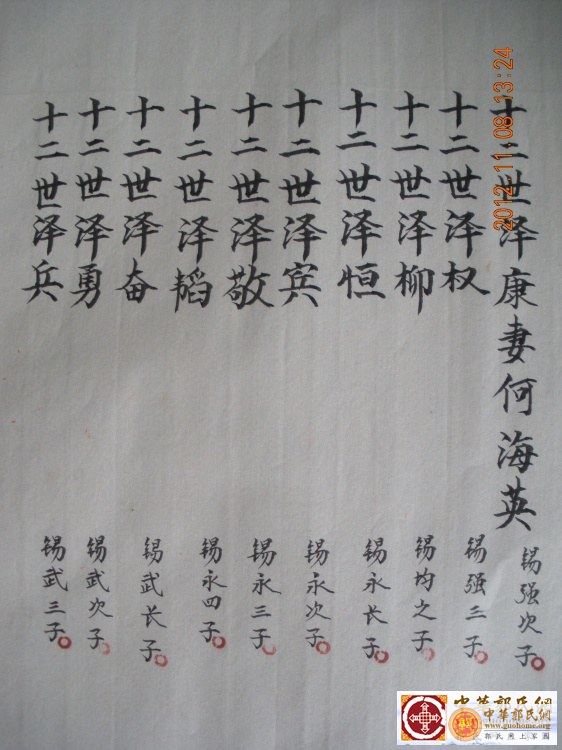 十二世泽康妻何海英
锡强次子
十二世泽权
锡强三子
十二世泽柳
锡均之子
十二世泽恒
锡永长子
十二世泽宾
锡永次子
十二世泽敬
锡永三子
十二世泽韬
锡永四子
十二世泽奋
锡武长子
十二世泽勇
锡武次子
十二世泽兵
锡武三子
2012 11 08 13:24
中華郭氏網
中華郭氏網
www.guohome.org
郭氏网上家园